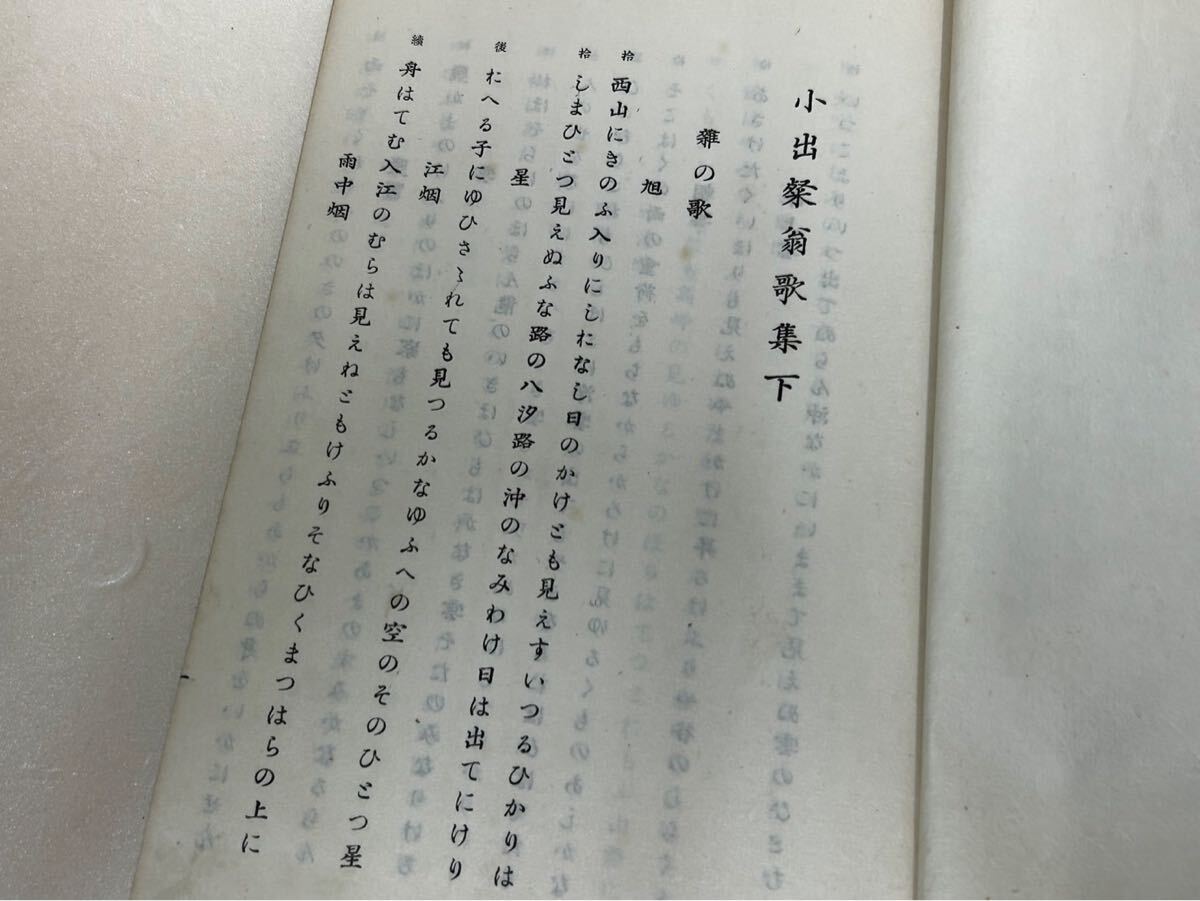 小出粲翁歌集下
雜の歌
旭
拾 西山にきのふ入りにしおなし日のかけとも見えすいつるひかりは
拾 しまひとつ見えぬふな路の八汐路の沖のなみわけ日は出てにけり
星
後 おへる子にゆひさゝれても見つるかなゆふへの空のそのひとつ星
江烟
續 舟はてむ入江のむらは見えねともけふりそなひくまつはらの上に
雨中烟